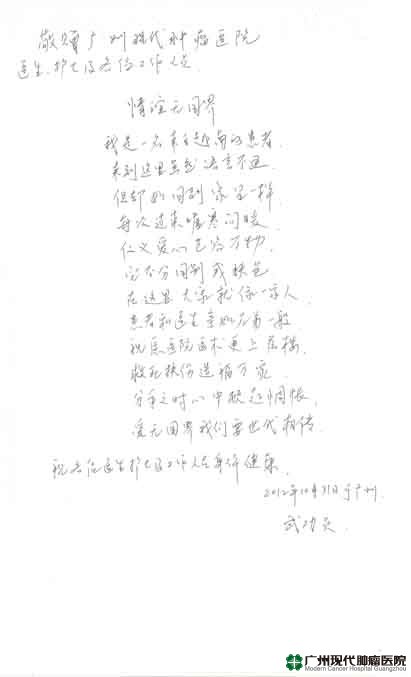 敬赠广州现代肿瘤医院
医生、护士及各位工作人员
情谊无国界
我是一名来自越南的患者
来到这里虽然语言不通
但却如回到家里一样
每次过来嘘寒问暖
仁义爱心包容万物
它不分国别或肤色
在这里大家就像一家人
患者和医生亲如兄弟一般
祝愿医院医术更上层楼
救死扶伤造福万家
分手之时心中颇起惆怅
爱无国界我们要世代相传
祝各位医生护士及工作人员身体健康
2012年10月31日于广州
武功
广州现代肿瘤医院
Modern Cancer Hospital Guangzhou